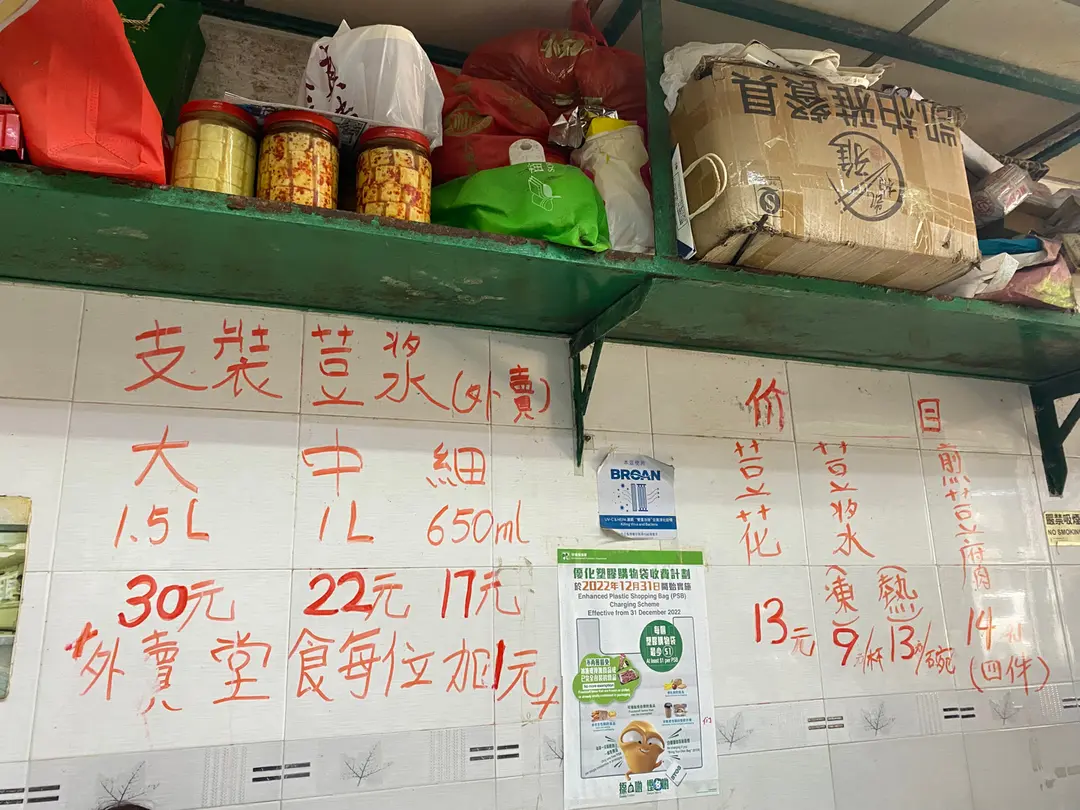 凯柏雅餐具
支裝荳漿(外賣)
大 中 細
1.5L 1L 650ml
30元 22元 17元
+外賣堂食每位加1元+
价目
荳花
13元
荳漿
(凍) (熱)
9元/杯 13/碗
煎荳腐
14元
(四件)
BROAN
優化塑膠購物袋收費計劃
於2022年12月31日開始實施
Enhanced Plastic Shopping Bag (PSB)
Charging Scheme
Effective from 31 December 2022
每個
塑膠購物袋
最少$1
At least $1 per PSB
嚴禁吸煙
NO SMOKING